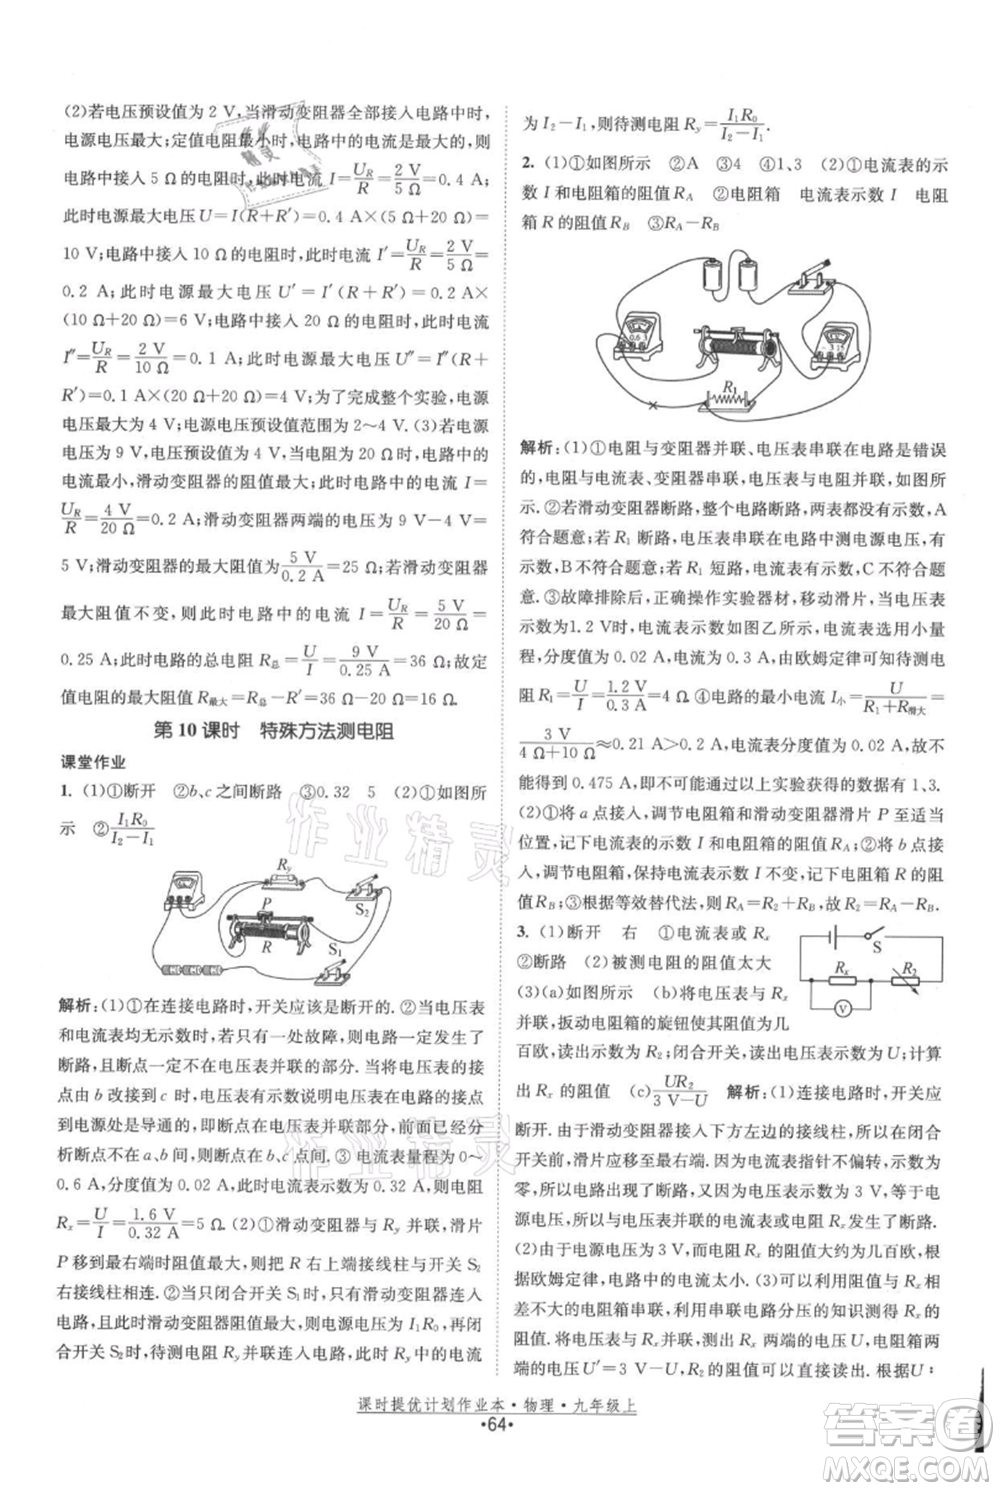 (2)若电压预设值为 2 V,当滑动变阻器全部接入电路中时,
电源电压最大;定值电阻最小时,电路中的电流最大;此时电
路中接入 5 Ω 定值电阻时,此时最大电流 I=U_R/R=2 V/5 Ω=0.4 A;
此时电源最大电压 U=I(R+R′)=0.4 A×(5 Ω+20 Ω)=
10 V;电路中接入10 Ω电阻时,此时电流 I′=U_R/R=2 V/10 Ω=
0.2 A;此时电源最大电压 U′=I′(R+R′)=0.2 A×
(10 Ω+20 Ω)=6 V;电路中接入 20 Ω 电阻时,此时电流
I″=U_R/R=2 V/10 Ω=0.1 A;此时电源最大电压 U″=I″(R+
R′)=0.1 A×(20 Ω+20 Ω)=4 V;为了完成整个实验,电
源电压最大为 4 V,电源电压预设值范围为 2～4 V.(3)若电
源电压为 9 V,电阻两端电压为 4 V,定值电阻阻值为 20 Ω
时,电路中电流最小,滑动变阻器的阻值最大,电路中的电流
U_R/R=4 V/20 Ω=0.2 A;滑动变阻器两端的电压为 9 V-4 V=
5 V;滑动变阻器的最大阻值为5 V/0.2 A=25 Ω;若滑动变阻器
最大阻值不变,则此时电路中的电流 I=U_R/R=5 V/20 Ω=
0.25 A;此时电路的总电阻 R总=U/I=9 V/0.25 A=36 Ω;故定
值电阻的最大阻值 R最大=R总-R′=36 Ω-20 Ω=16 Ω.
第 10 课时 特殊方法测电阻
课堂作业
1. (1)①断开 ②b、c 之间断路 ③0.32 5 (2)①如图所
示 ②I₁R₀/(I₂-I₁)
Ry
P
R
S₂
S₁
解析:(1)①在连接电路时,开关应该是断开的.②当电压表
和电流表均无示数时,电路一定有一处故障,而且一定发生了
断路,断点一定不在电压表并联的电路部分;将电压表的接
点由 b 改接到 c 时,电压表有明显示数,说明电压表的接线
点与电源成导通状态,说明断点一定在与电压表并联的电路
部分,即断点与电压表并联部分,而前一次没有示数,由前面
分析断点不在 a、b 间,所以断点在 b、c 间.③ 电流表量程为 0～
0.6 A,分度值为 0.02 A,此时电流表示数为 0.32 A,则电阻
Rx=U/I=1.6 V/0.32 A=5 Ω. (2)①滑动变阻器与 Ry 并联,滑片
P 移动到最右端时阻值最大,所以 R 右上端接线柱与开关 S₂
右接线柱相连.②当只闭合开关 S₁时,只有滑动变阻器连入
电路;当再闭合 S₂ 时,待测电阻 Ry 并联连入电路中的电流
为 I₂-I₁,则待测电阻 Ry=I₁R₀/(I₂-I₁).
2. (1)①如图所示 ②A ③4 ④1、3 (2)①电流表的示
数 I 和电阻箱的阻值 R_A ②电阻箱 电流表示数 I 电阻
箱 R 的阻值 R_B ③R_A-R_B
R₁
解析:(1)①电阻与变阻器并联、电压表串联在电路是错误
的,电阻与电流表、变阻器串联,电压表与电阻并联,如图所
示.②若滑动变阻器断路,整个电路断路,两表都没有示数,A
符合题意;若 R₁ 断路,电压表串联在电路中测电源电压,有
示数,B不符合题意;若 R₁ 短路,电流表有示数,C不符合题
意.③故障排除后,正确操作实验器材,移动滑片,当电压表
示数为1.2 V时,电流表示数如图乙所示,电流表选用小量
程,分度值为 0.02 A,电流为 0.3 A;由欧姆定律可知待测电
阻 R₁=U/I=1.2 V/0.3 A=4 Ω.④电路的最小电流 I小=U/(R₁+R滑大)=
3 V/(4 Ω+10 Ω)≈0.21 A>0.2 A,电流表分度值为 0.02 A,故不
能得到 0.475 A,所以以上实验获得的数据可能有 1、3.
(2)①将 a 点接入,调节电阻箱和滑动变阻器滑片 P 至适当
位置,记下电流表示数 I 和电阻箱的阻值 R_A;②将 b 点接
入,调节电阻箱,保持电流表示数 I 不变,记下电阻箱 R 的阻
值 R_B;③根据等效替代法,则 R_A=R₀+R_B,R₀=R_A-R_B.
3. (1)断开 右 ①电流表或 Rx
②断路 (2)被测电阻的阻值太大
(3)(a)如图所示 (b)将电压表与 Rx
并联,扳动电阻箱的旋钮使其电阻为几
百欧,读出示数 R₂;闭合开关,读出电压表示数为 U;计算
出 Rx 的阻值 (c)UR₂/(3 V-U) 解析:(1)连接电路时,开关应
S
Rx
R₂
V
断开.由于滑动变阻器接入下方左边的接线柱,所以在闭合
开关前,滑片应移至最右端.因为电流表指针不偏转,示数为
零,所以电路出现了断路,又因为电压表示数为 3 V,等于电
源电压,所以与电压表并联的元件以外的部分没有发生断路.
(2)由于电源电压有 3 V,而电阻 Rx 的阻值大约几百欧,根
据欧姆定律,电路中的电流太小.(3)将电阻 Rx 和与其阻值相
差不大的电阻箱串联,利用串联电路分压的知识测出 Rx 的
阻值.将电压表与 Rx 并联,测出 Rx 两端的电压 U,电阻箱两
端的电压 U′=3 V-U,电阻箱的阻值可以直接读出.故U∶
课时提优计划作业本·物理·九年级上
·64·
作业精灵
作业精灵
答案圈
MXQE.COM